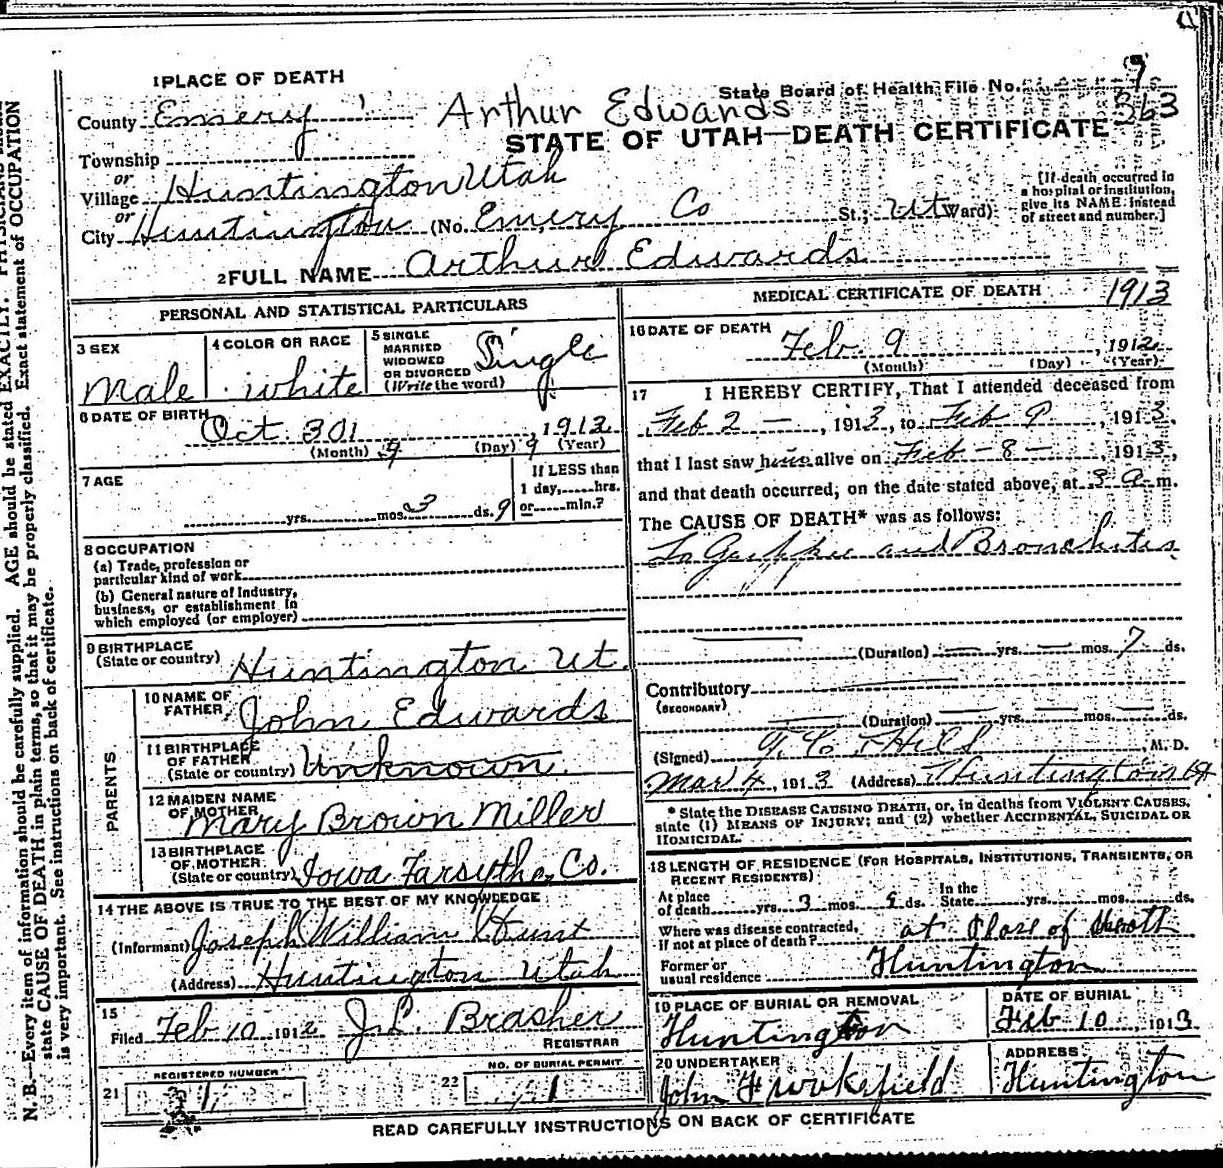 1 PLACE OF DEATH
State Board of Health File No. 9
363
County Emery Arthur Edwards
STATE OF UTAH—DEATH CERTIFICATE
Township
or
Village Huntington Utah
or
City Huntington (No. Emery Co St.; Ut Ward)
[If death occurred in
a hospital or institution,
give its NAME instead
of street and number.]
2 FULL NAME Arthur Edwards
PERSONAL AND STATISTICAL PARTICULARS
3 SEX
Male
4 COLOR OR RACE
white
5 SINGLE
MARRIED
WIDOWED
OR DIVORCED
(Write the word)
Single
6 DATE OF BIRTH
Oct. 301 1912
(Month) 9 (Day) 9 (Year)
7 AGE
yrs. mos. 3 ds. 9
If LESS than
1 day, hrs.
or min.?
8 OCCUPATION
(a) Trade, profession or
particular kind of work
(b) General nature of Industry,
business, or establishment in
which employed (or employer)
9 BIRTHPLACE
(State or country) Huntington Ut.
PARENTS
10 NAME OF
FATHER John Edwards
11 BIRTHPLACE
OF FATHER
(State or country) Unknown.
12 MAIDEN NAME
OF MOTHER Mary Brown Miller
13 BIRTHPLACE
OF MOTHER
(State or country) Iowa Farsythe, Co.
14 THE ABOVE IS TRUE TO THE BEST OF MY KNOWLEDGE
(Informant) Joseph William Hunt
(Address) Huntington Utah
15
Filed Feb 10 1912 J. L. Brasher
REGISTRAR
21 REGISTERED NUMBER
31
22 NO. OF BURIAL PERMIT
1
MEDICAL CERTIFICATE OF DEATH 1913
16 DATE OF DEATH
Feb. 9, 1912
(Month) (Day) (Year)
17 I HEREBY CERTIFY, That I attended deceased from
Feb 2 —, 1913, to Feb 9, 1913,
that I last saw him alive on Feb - 8 -, 1913,
and that death occurred, on the date stated above, at 3 a m.
The CAUSE OF DEATH* was as follows:
La Grippe and Bronchitis
(Duration) yrs. mos. 7 ds.
Contributory
(SECONDARY)
(Duration) yrs. mos. ds.
(Signed) Hill, M. D.
Mar 4, 1913 (Address) Huntington Ut
* State the DISEASE CAUSING DEATH, or, in deaths from VIOLENT CAUSES,
state (1) MEANS OF INJURY; and (2) whether ACCIDENTAL, SUICIDAL OR
HOMICIDAL.
18 LENGTH OF RESIDENCE (FOR HOSPITALS, INSTITUTIONS, TRANSIENTS, OR
RECENT RESIDENTS)
At place
of death yrs. 3 mos. 9 ds. In the
State yrs. mos. ds.
Where was disease contracted,
if not at place of death? at Place of Death
Former or
usual residence Huntington
19 PLACE OF BURIAL OR REMOVAL
Huntington
DATE OF BURIAL
Feb 10, 1913
20 UNDERTAKER
John F Wakefield
ADDRESS
Huntington
READ CAREFULLY INSTRUCTIONS ON BACK OF CERTIFICATE
N. B.—Every item of information should be carefully supplied. AGE should be stated EXACTLY. PHYSICIANS
state CAUSE OF DEATH in plain terms, so that it may be properly classified. Exact statement of OCCUPATION
is very important. See instructions on back of certificate.